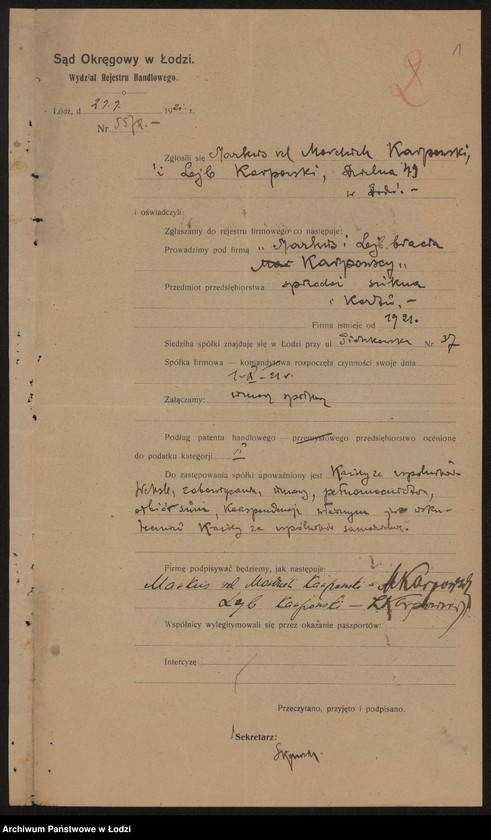 1
2
Sąd Okręgowy w Łodzi.
Wydział Rejestru Handlowego.
Łódź, d 29.9. 192 r.
Nr. 5572.—
Zgłosili się Markus vel Mordech Karpowski,
i Lejb Karpowski, Dzielna 49
w Łodzi.—
i oświadczyli:
Zgłaszamy do rejestru firmowego co następuje:
Prowadzimy pod firmą „Markus i Lejb bracia
Karpowscy„
Przedmiot przedsiębiorstwa sprzedaż sukna
i Kortu.—
Firma istnieje od 1921.
Siedziba spółki znajduje się w Łodzi przy ul Piotrkowska Nr 37
Spółka firmowa — komandytowa rozpoczęła czynności swoje dnia
1-X-21 r.
Załączamy: umowę spółki
Podług patentu handlowego — przemysłowego przedsiębiorstwo ocenione
do podatku kategorji II
Do zastępowania spółki upoważniony jest Każdy ze wspólników
Weksle, zobowiązania, umowy, pełnomocnictwa,
odbiór sum, korespondencję
Każdy ze wspólników samodzielnie.
Firmę podpisywać będziemy, jak następuje:
Markus vel Mordech Karpowski — MKarpowski
Lejb Karpowski — LKarpowski
Wspólnicy wylegitymowali się przez okazanie paszportów:
Intercyzę
Przeczytano, przyjęto i podpisano.
Sekretarz:
Archiwum Państwowe w Łodzi